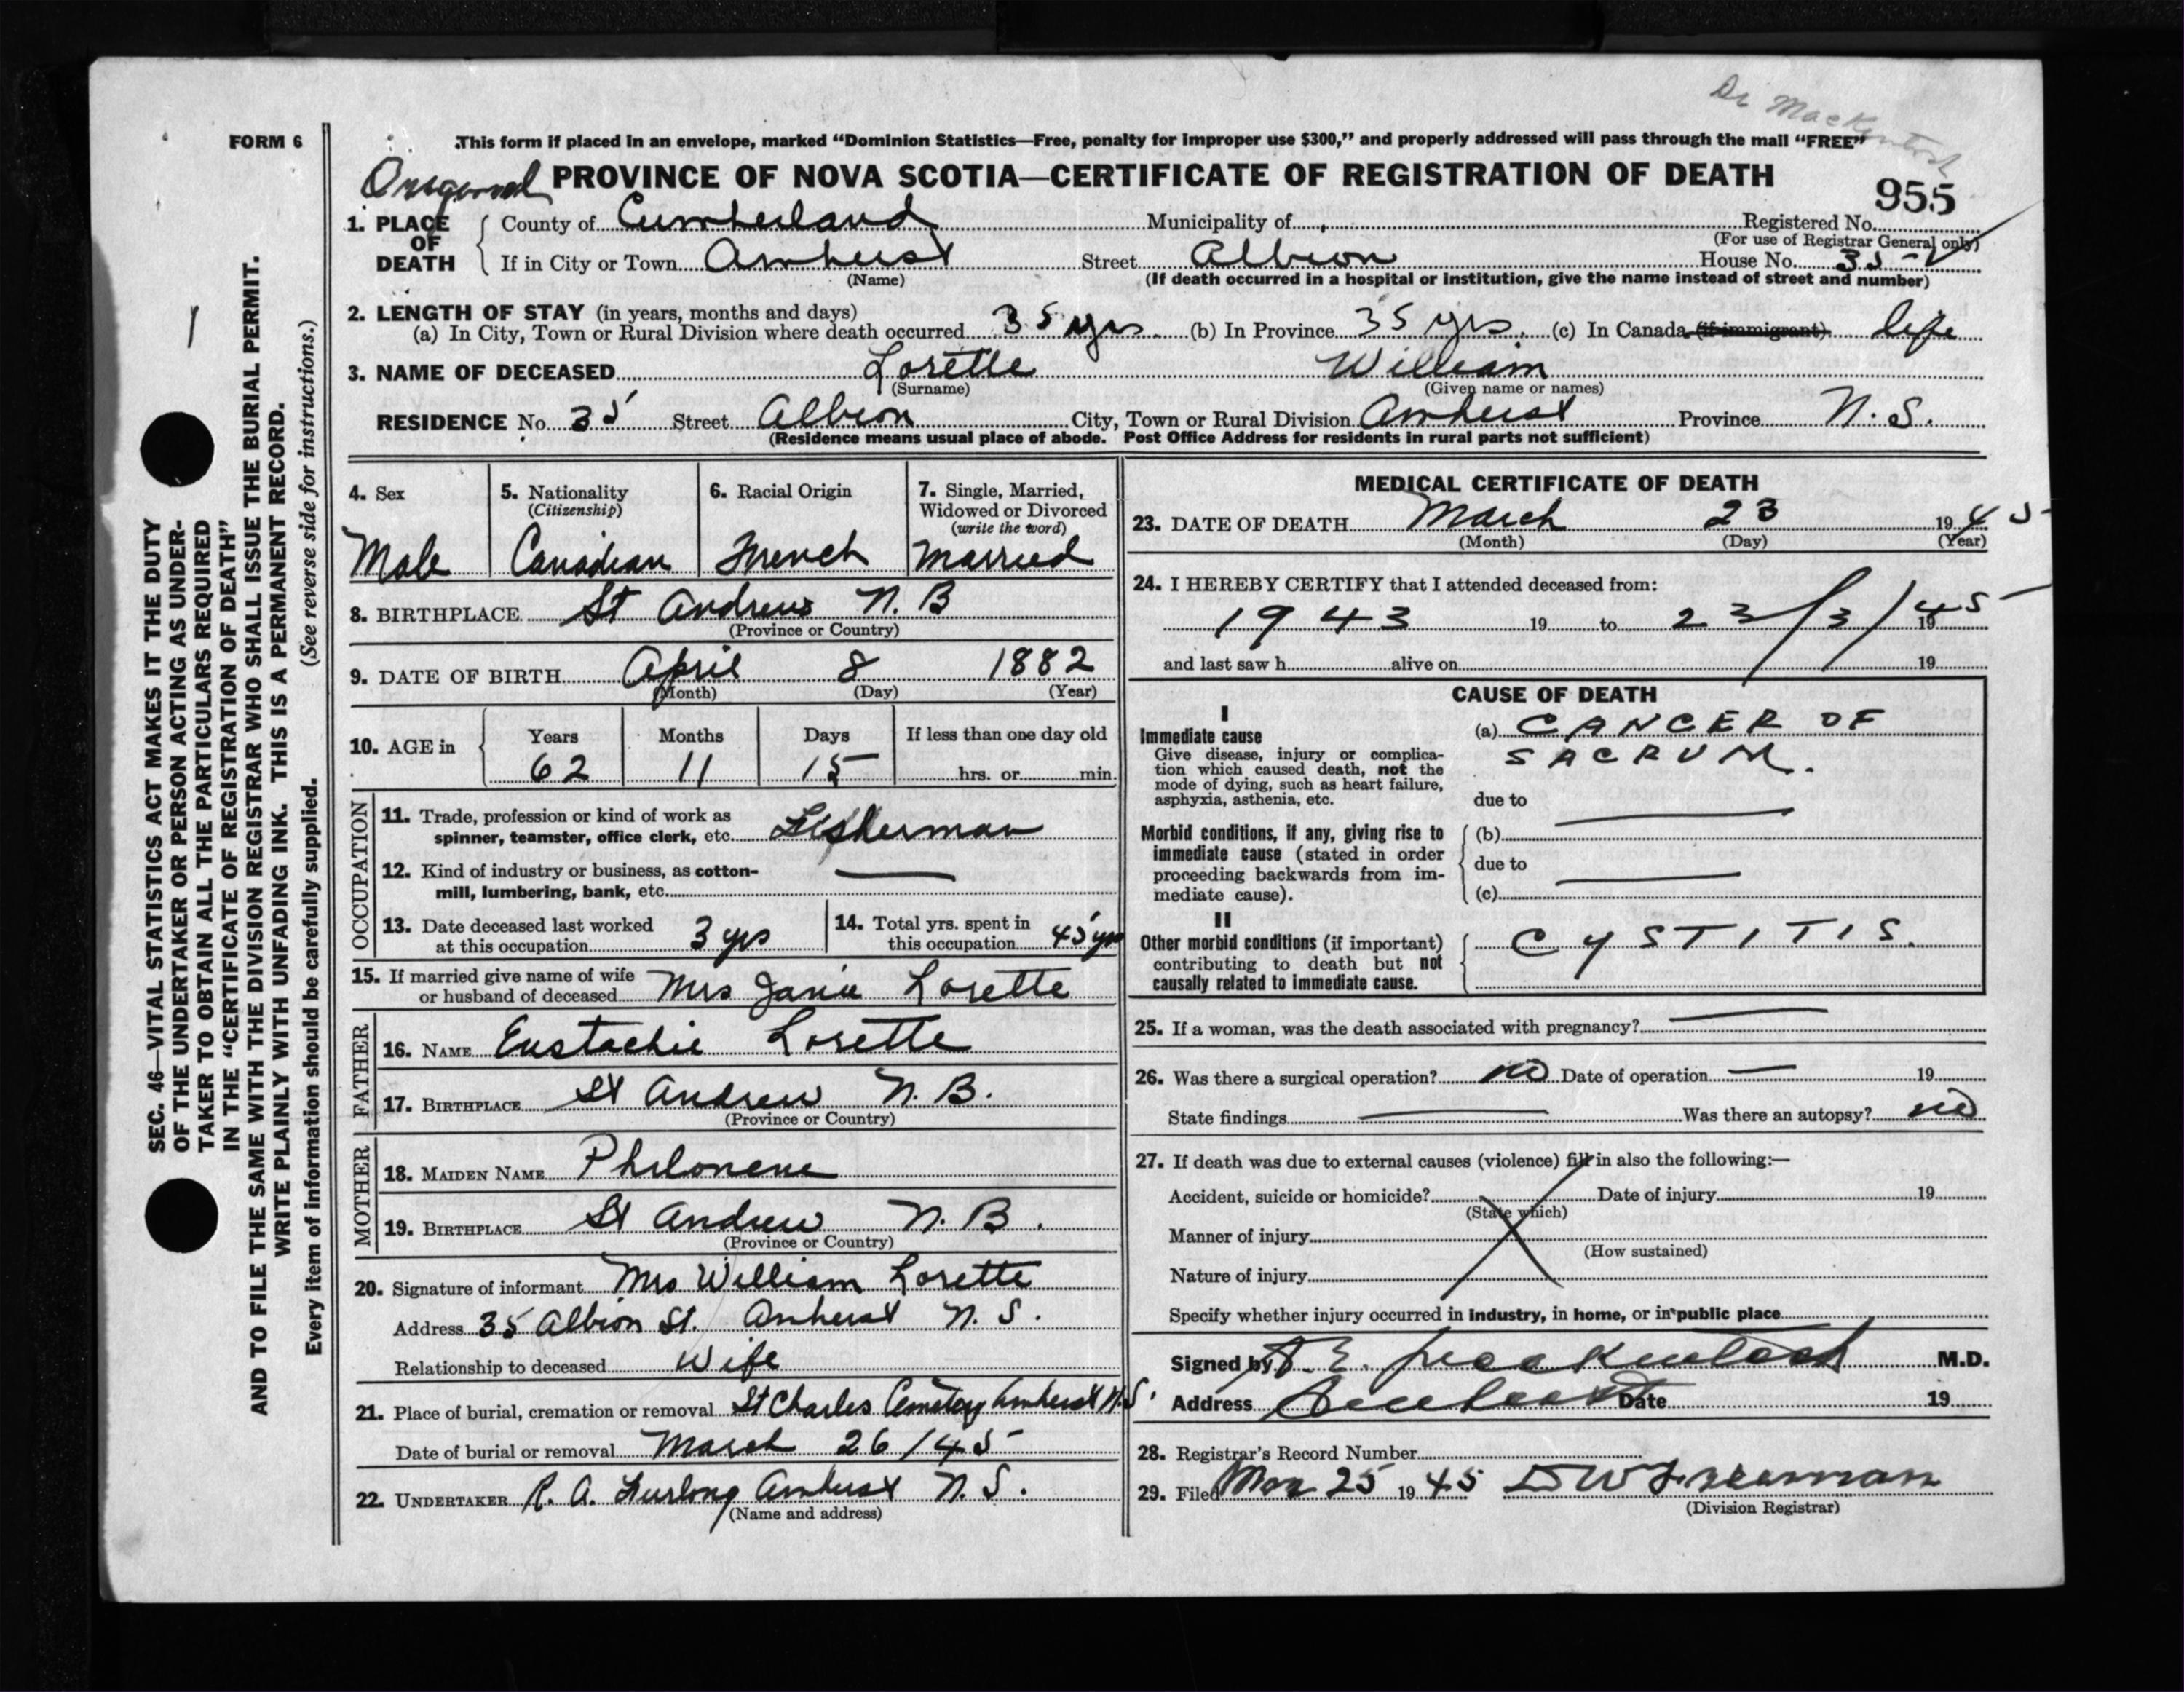 Dr MacKintosh
FORM 6
This form if placed in an envelope, marked “Dominion Statistics—Free, penalty for improper use $300,” and properly addressed will pass through the mail “FREE”
PROVINCE OF NOVA SCOTIA—CERTIFICATE OF REGISTRATION OF DEATH
955
1. PLACE OF DEATH
County of Cumberland Municipality of Registered No.
(For use of Registrar General only)
If in City or Town Amherst Street Albion House No. 35
(Name) (If death occurred in a hospital or institution, give the name instead of street and number)
2. LENGTH OF STAY (in years, months and days)
(a) In City, Town or Rural Division where death occurred 35 yrs (b) In Province 35 yrs. (c) In Canada (if immigrant) life
3. NAME OF DECEASED Lorette William
(Surname) (Given name or names)
RESIDENCE No. 35 Street Albion City, Town or Rural Division Amherst Province N. S.
(Residence means usual place of abode. Post Office Address for residents in rural parts not sufficient)
4. Sex
Male
5. Nationality
(Citizenship)
Canadian
6. Racial Origin
French
7. Single, Married,
Widowed or Divorced
(write the word)
Married
8. BIRTHPLACE St Andrews N. B
(Province or Country)
9. DATE OF BIRTH April 8 1882
(Month) (Day) (Year)
10. AGE in
Years Months Days If less than one day old
62 11 15 hrs. or min.
OCCUPATION
11. Trade, profession or kind of work as
spinner, teamster, office clerk, etc. Fisherman
12. Kind of industry or business, as cotton-
mill, lumbering, bank, etc. —
13. Date deceased last worked
at this occupation 3 yrs
14. Total yrs. spent in
this occupation 45 yrs
15. If married give name of wife
or husband of deceased Mrs Janie Lorette
FATHER
16. NAME Eustachie Lorette
17. BIRTHPLACE St Andrew N. B.
(Province or Country)
MOTHER
18. MAIDEN NAME Philomene
19. BIRTHPLACE St Andrew N. B.
(Province or Country)
20. Signature of informant Mrs William Lorette
Address 35 Albion St. Amherst N. S.
Relationship to deceased Wife
21. Place of burial, cremation or removal St Charles Cemetery Amherst N.S.
Date of burial or removal March 26/45
22. UNDERTAKER R. A. Furlong Amherst N. S.
(Name and address)
MEDICAL CERTIFICATE OF DEATH
23. DATE OF DEATH March 23 1945
(Month) (Day) (Year)
24. I HEREBY CERTIFY that I attended deceased from:
1943 19 to 23/3/45 19
and last saw h alive on 19
CAUSE OF DEATH
I
Immediate cause
Give disease, injury or complica-
tion which caused death, not the
mode of dying, such as heart failure,
asphyxia, asthenia, etc.
(a) CANCER OF
SACRUM.
due to —
Morbid conditions, if any, giving rise to
immediate cause (stated in order
proceeding backwards from im-
mediate cause).
(b)
due to —
(c)
II
Other morbid conditions (if important)
contributing to death but not
causally related to immediate cause.
CYSTITIS.
25. If a woman, was the death associated with pregnancy? —
26. Was there a surgical operation? no Date of operation — 19
State findings — Was there an autopsy? no
27. If death was due to external causes (violence) fill in also the following:—
Accident, suicide or homicide? Date of injury 19
(State which)
Manner of injury
(How sustained)
Nature of injury
Specify whether injury occurred in industry, in home, or in public place
Signed by MacKintosh M.D.
Address Amherst Date 19
28. Registrar's Record Number
29. Filed Mar 25 1945 D W Freeman
(Division Registrar)
SEC. 46—VITAL STATISTICS ACT MAKES IT THE DUTY
OF THE UNDERTAKER OR PERSON ACTING AS UNDER-
TAKER TO OBTAIN ALL THE PARTICULARS REQUIRED
IN THE “CERTIFICATE OF REGISTRATION OF DEATH”
AND TO FILE THE SAME WITH THE DIVISION REGISTRAR WHO SHALL ISSUE THE BURIAL PERMIT.
WRITE PLAINLY WITH UNFADING INK. THIS IS A PERMANENT RECORD.
Every item of information should be carefully supplied. (See reverse side for instructions.)